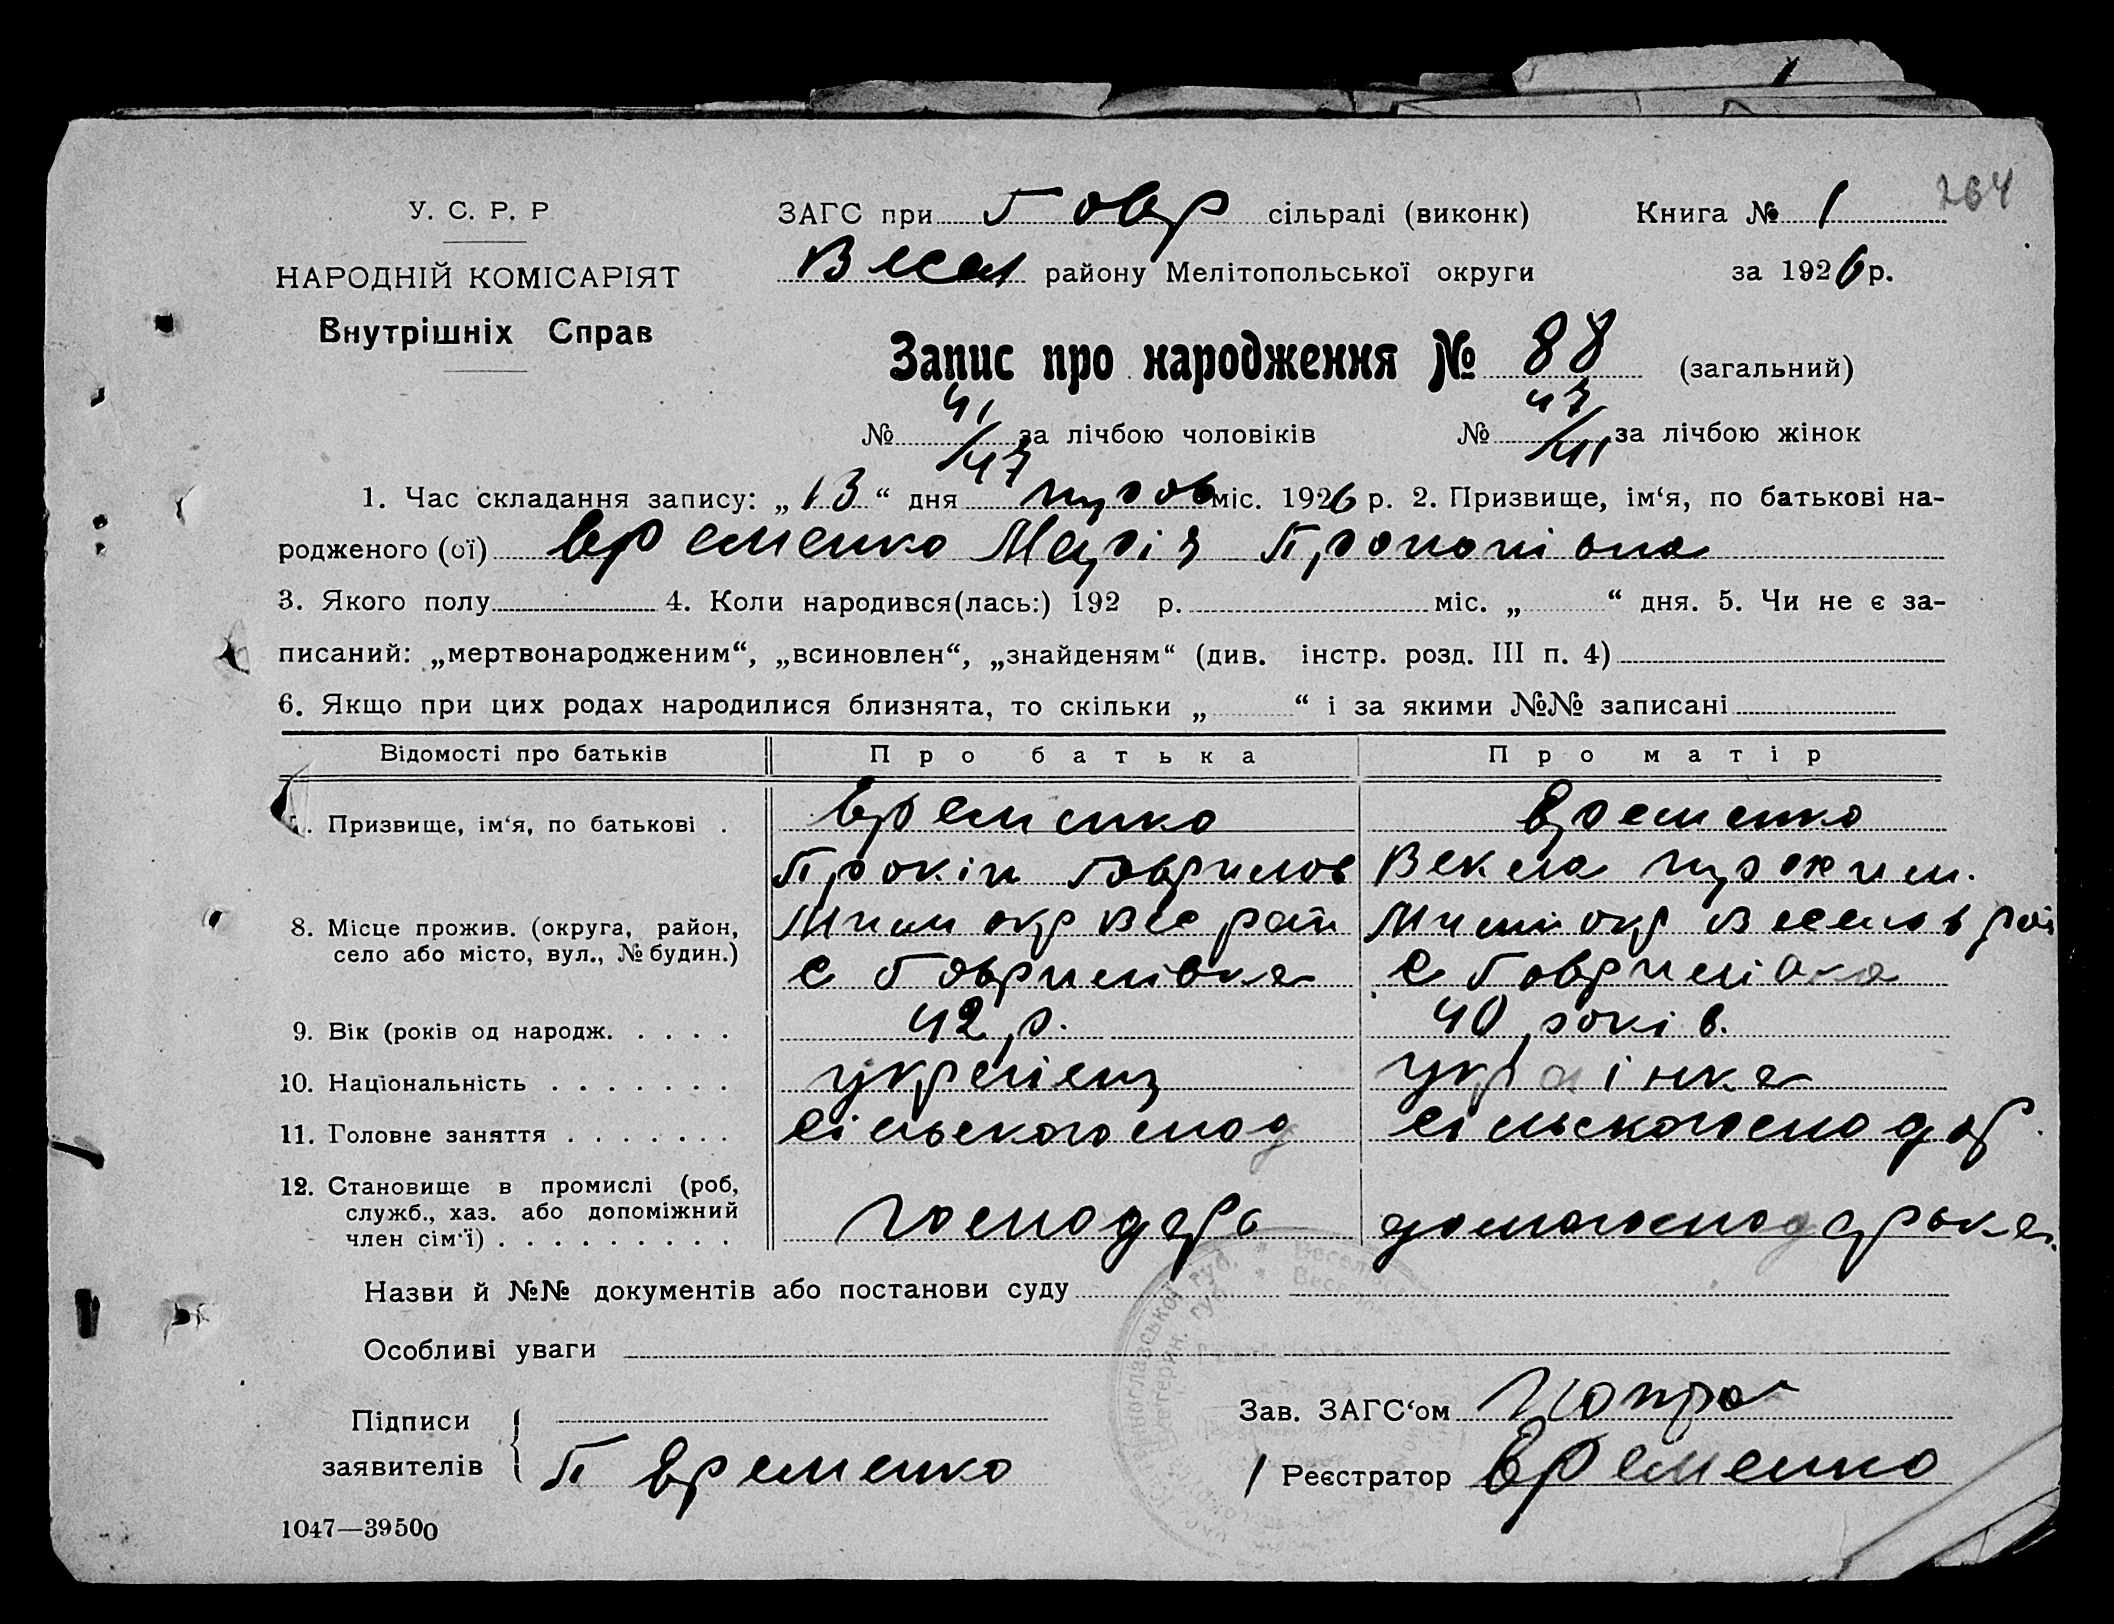 264
У. С. Р. Р
ЗАГС при Гавр сільраді (виконк) Книга № 1
НАРОДНІЙ КОМІСАРІЯТ
Весел району Мелітопольської округи за 1926 р.
Внутрішніх Справ
Запис про народження № 88 (загальний)
№ 41/47 за лічбою чоловіків № 47/41 за лічбою жінок
1. Час складання запису: „13“ дня міс. 1926 р. 2. Призвище, ім‘я, по батькові на-
родженого (ої) Єременко Марія
3. Якого полу 4. Коли народився(лась:) 192 р. міс. „ “ дня. 5. Чи не є за-
писаний: „мертвонародженим“, „всиновлен“, „знайденям“ (див. інстр. розд. III п. 4)
6. Якщо при цих родах народилися близнята, то скільки „ “ і за якими №№ записані
Відомості про батьків Про батька Про матір
7. Призвище, ім‘я, по батькові . Єременко Єременко
Гаврилов Векла
8. Місце прожив. (округа, район, окр Вес рай окр рай
село або місто, вул., № будин.) с Гаврилівка с Гаврилівка
9. Вік (років од народж. . . . . 42 р. 40 років.
10. Національність . . . . . . . українка
11. Головне заняття . . . . . . . сільськогоспод сільськогосподар
12. Становище в промислі (роб,
служб., хаз. або допоміжний господарь домогосподарька
член сім‘ї) . . . . . . . . .
Назви й №№ документів або постанови суду
Особливі уваги
Зав. ЗАГС‘ом
Підписи
заявителів П Єременко
/ Реєстратор Єременко
1047—39500